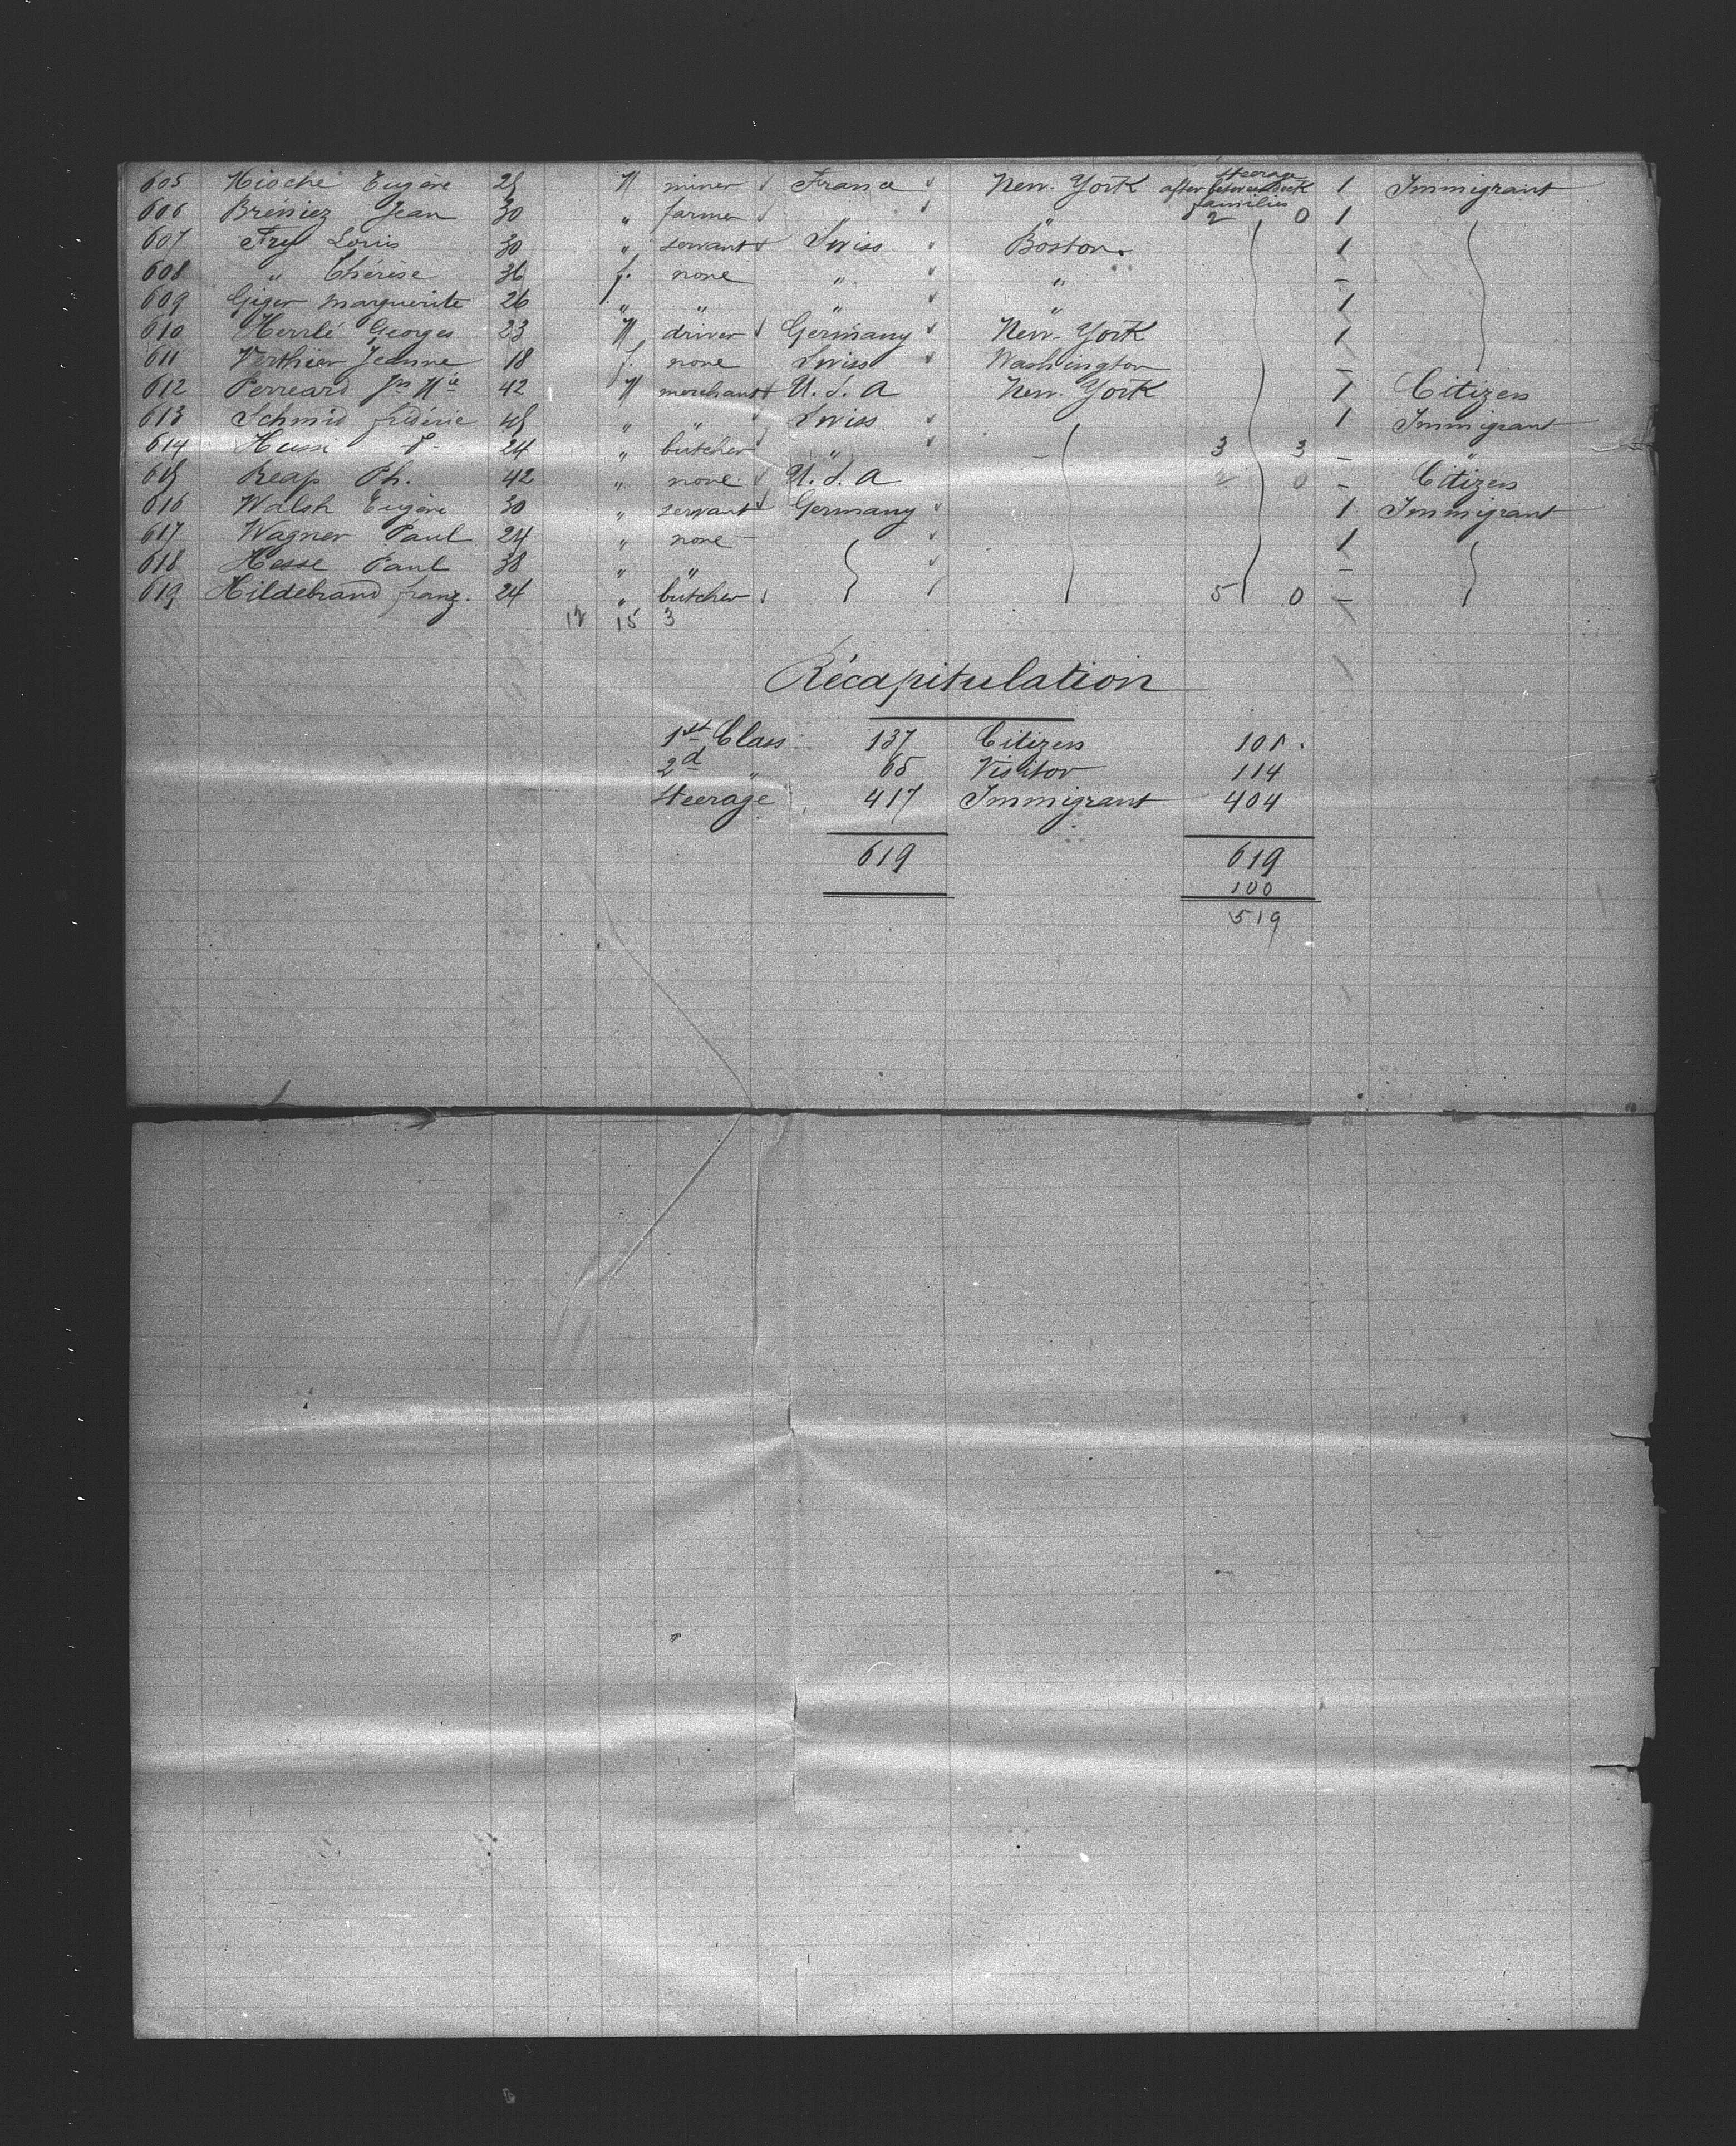 605 Hioche Eugène 25 M miner France New-York steerage after between deck families 1 Immigrant
606 Bréniez Jean 30 " farmer " 2 0 1
607 Frey Louis 30 " servant Swiss Boston. 1
608 " Thérèse 36 f. none " " -
609 Giger Marguerite 26 " " " 1
610 Herrlé Georges 23 M driver Germany New-York 1
611 Jeanne 18 f. none Swiss Washington -
612 Perreard 42 M merchant U.S.A New-York 1 Citizen
613 Schmid frédéric 45 " " Swiss 1 Immigrant
614 Hussi 24 " butcher " - 3 3 - "
615 Reap Ph. 42 " none U.S.A 2 0 - Citizen
616 Walsh Eugène 30 " servant Germany 1 Immigrant
617 Wagner Paul 24 " none 1
618 Hesse Paul 38 " " -
619 Hildebrand franz. 24 " butcher 5 0 -
12 15 3
Récapitulation
1st Class 137 Citizen 101.
2d " 65 Visitor 114
Steerage 417 Immigrant 404
619 619
100
519